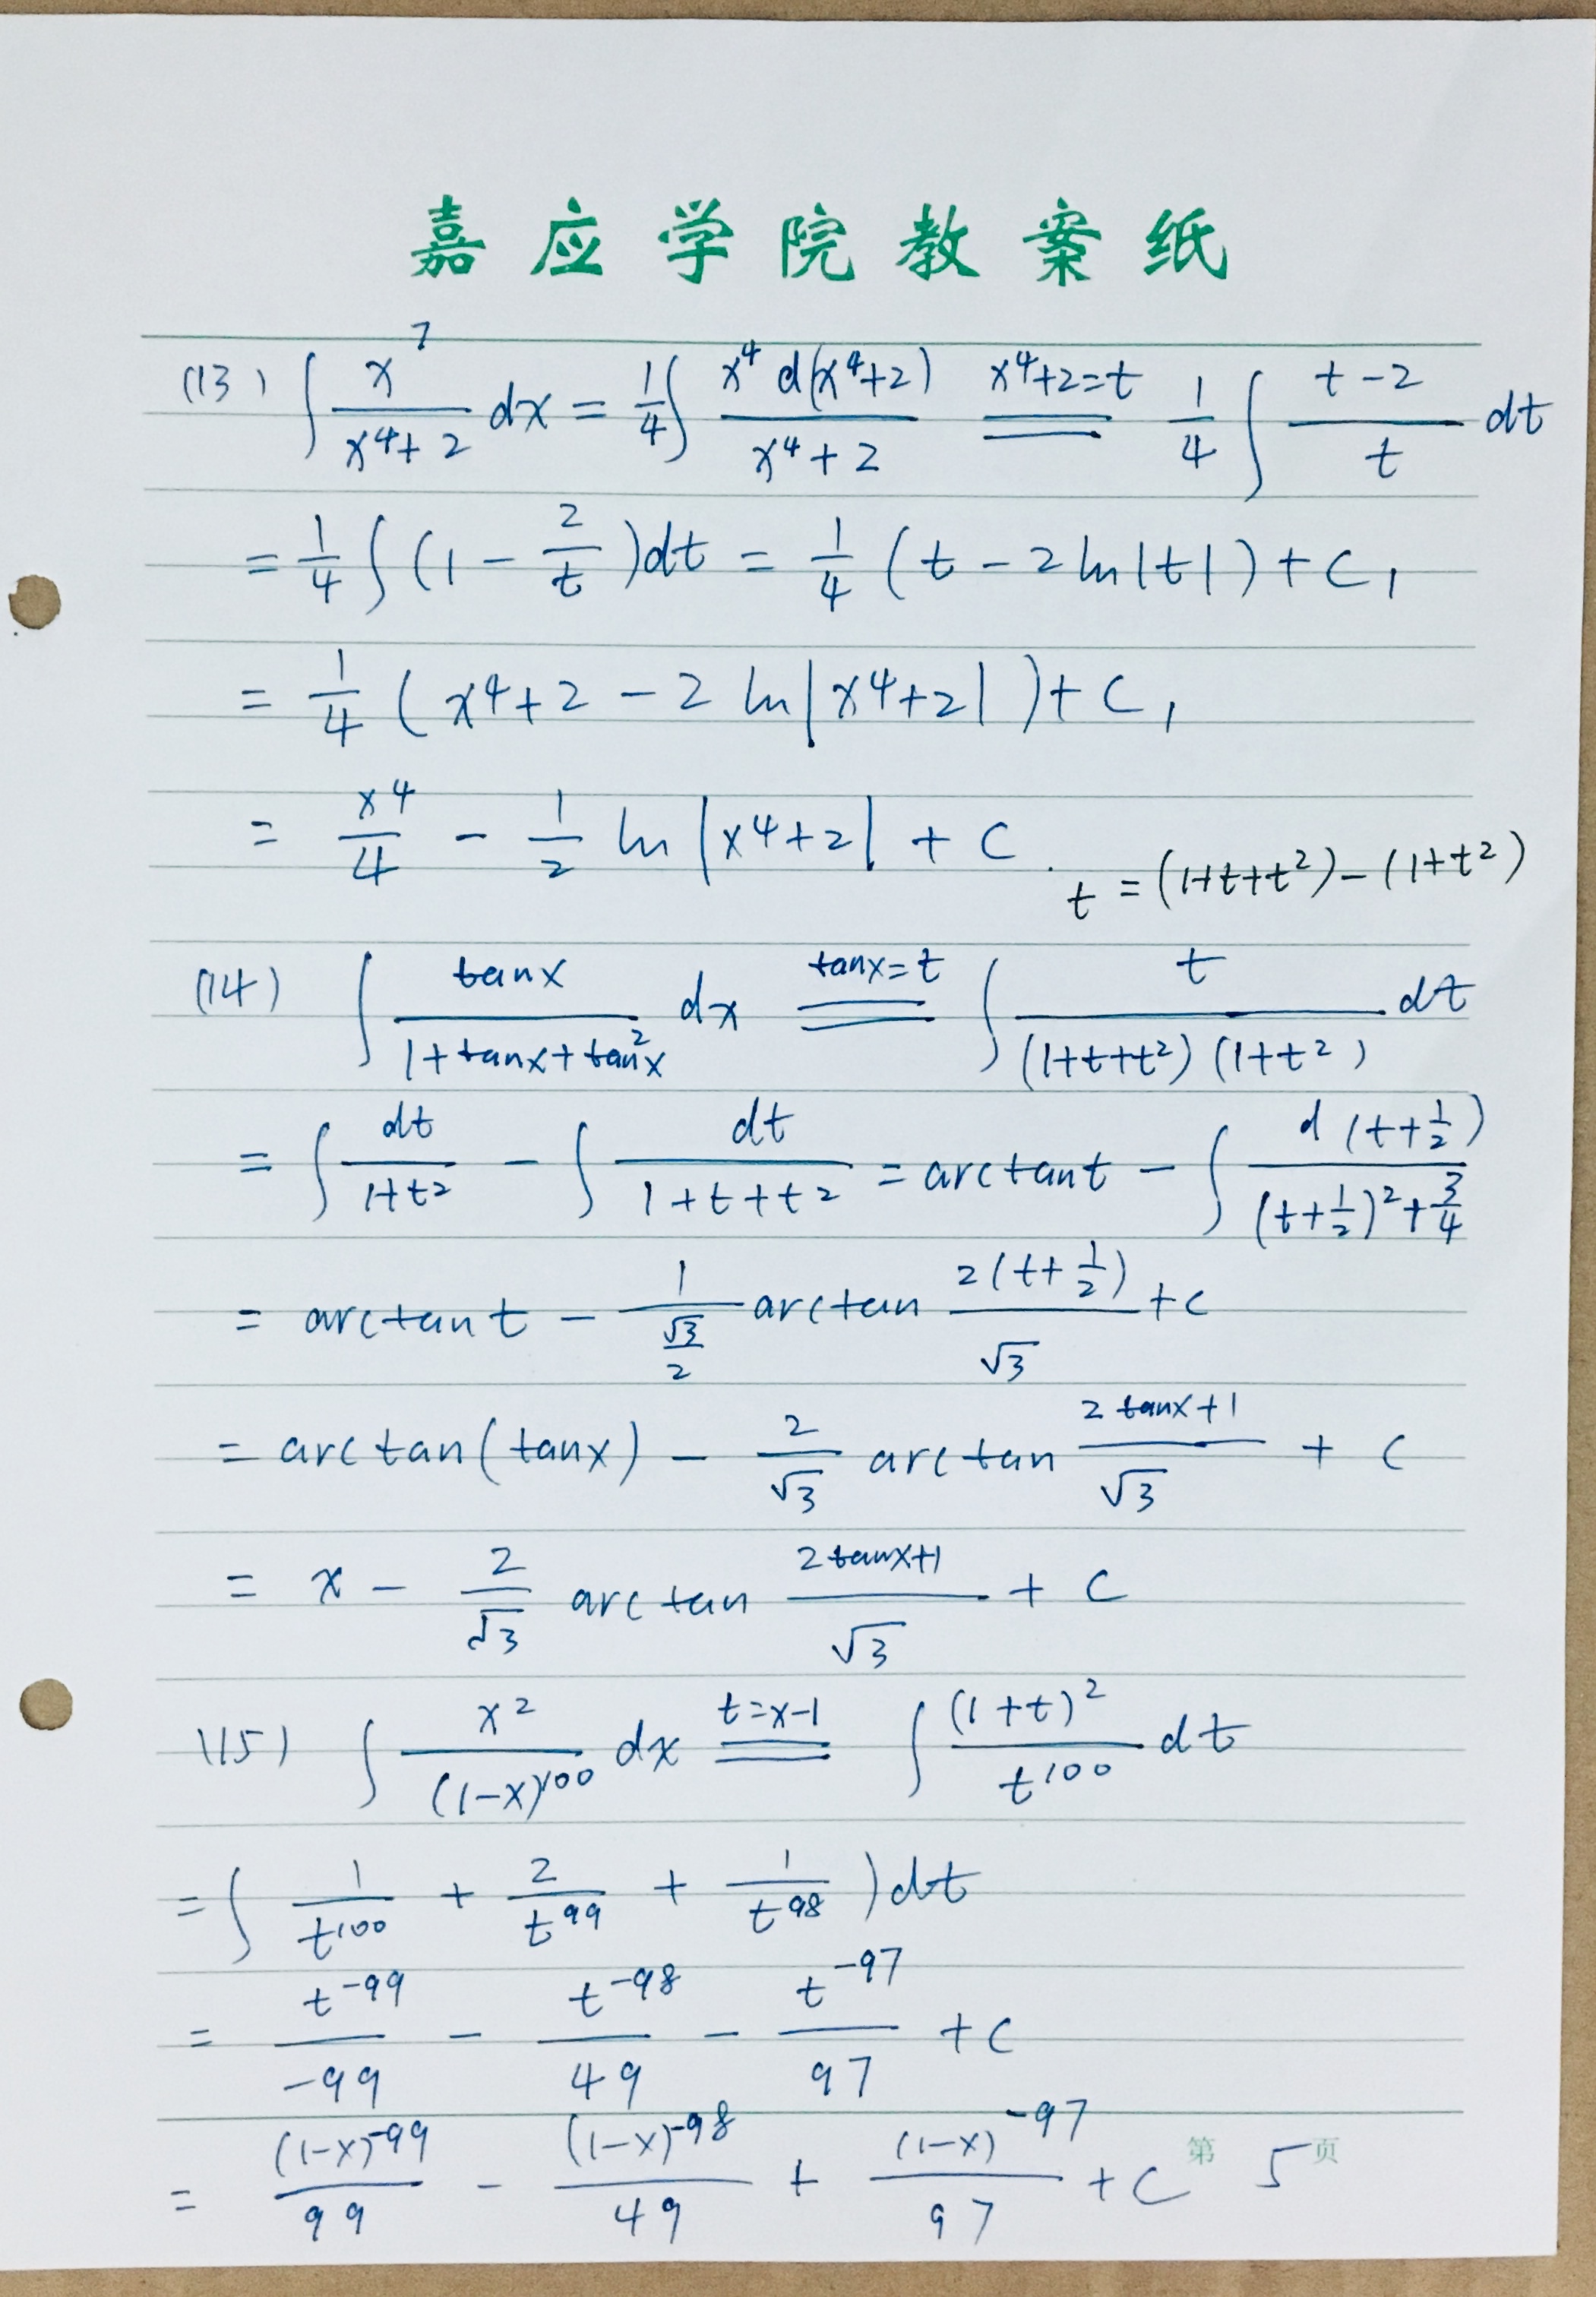 嘉应学院教案纸
(13) ∫ x^7/(x^4+2) dx = 1/4 ∫ x^4 d(x^4+2)/(x^4+2) \overset{x^4+2=t}{=} 1/4 ∫ (t-2)/t dt
= 1/4 ∫ (1 - 2/t) dt = 1/4 (t - 2 ln|t|) + C_1
= 1/4 (x^4+2 - 2 ln|x^4+2|) + C_1
= x^4/4 - 1/2 ln|x^4+2| + C.
t = (1+t+t^2) - (1+t^2)
(14) ∫ tanx/(1+tanx+tan^2x) dx \overset{tanx=t}{=} ∫ t/((1+t+t^2)(1+t^2)) dt
= ∫ dt/(1+t^2) - ∫ dt/(1+t+t^2) = arctant - ∫ d(t+1/2)/((t+1/2)^2+3/4)
= arctant - 1/(√3/2) arctan 2(t+1/2)/√3 + C
= arctan(tanx) - 2/√3 arctan (2tanx+1)/√3 + C
= x - 2/√3 arctan (2tanx+1)/√3 + C
(15) ∫ x^2/(1-x)^100 dx \overset{t=x-1}{=} ∫ (1+t)^2/t^100 dt
= ∫ 1/t^100 + 2/t^99 + 1/t^98) dt
= t^-99/-99 - t^-98/49 - t^-97/97 + C
= (1-x)^-99/99 - (1-x)^-98/49 + (1-x)^-97/97 + C
第 5 页